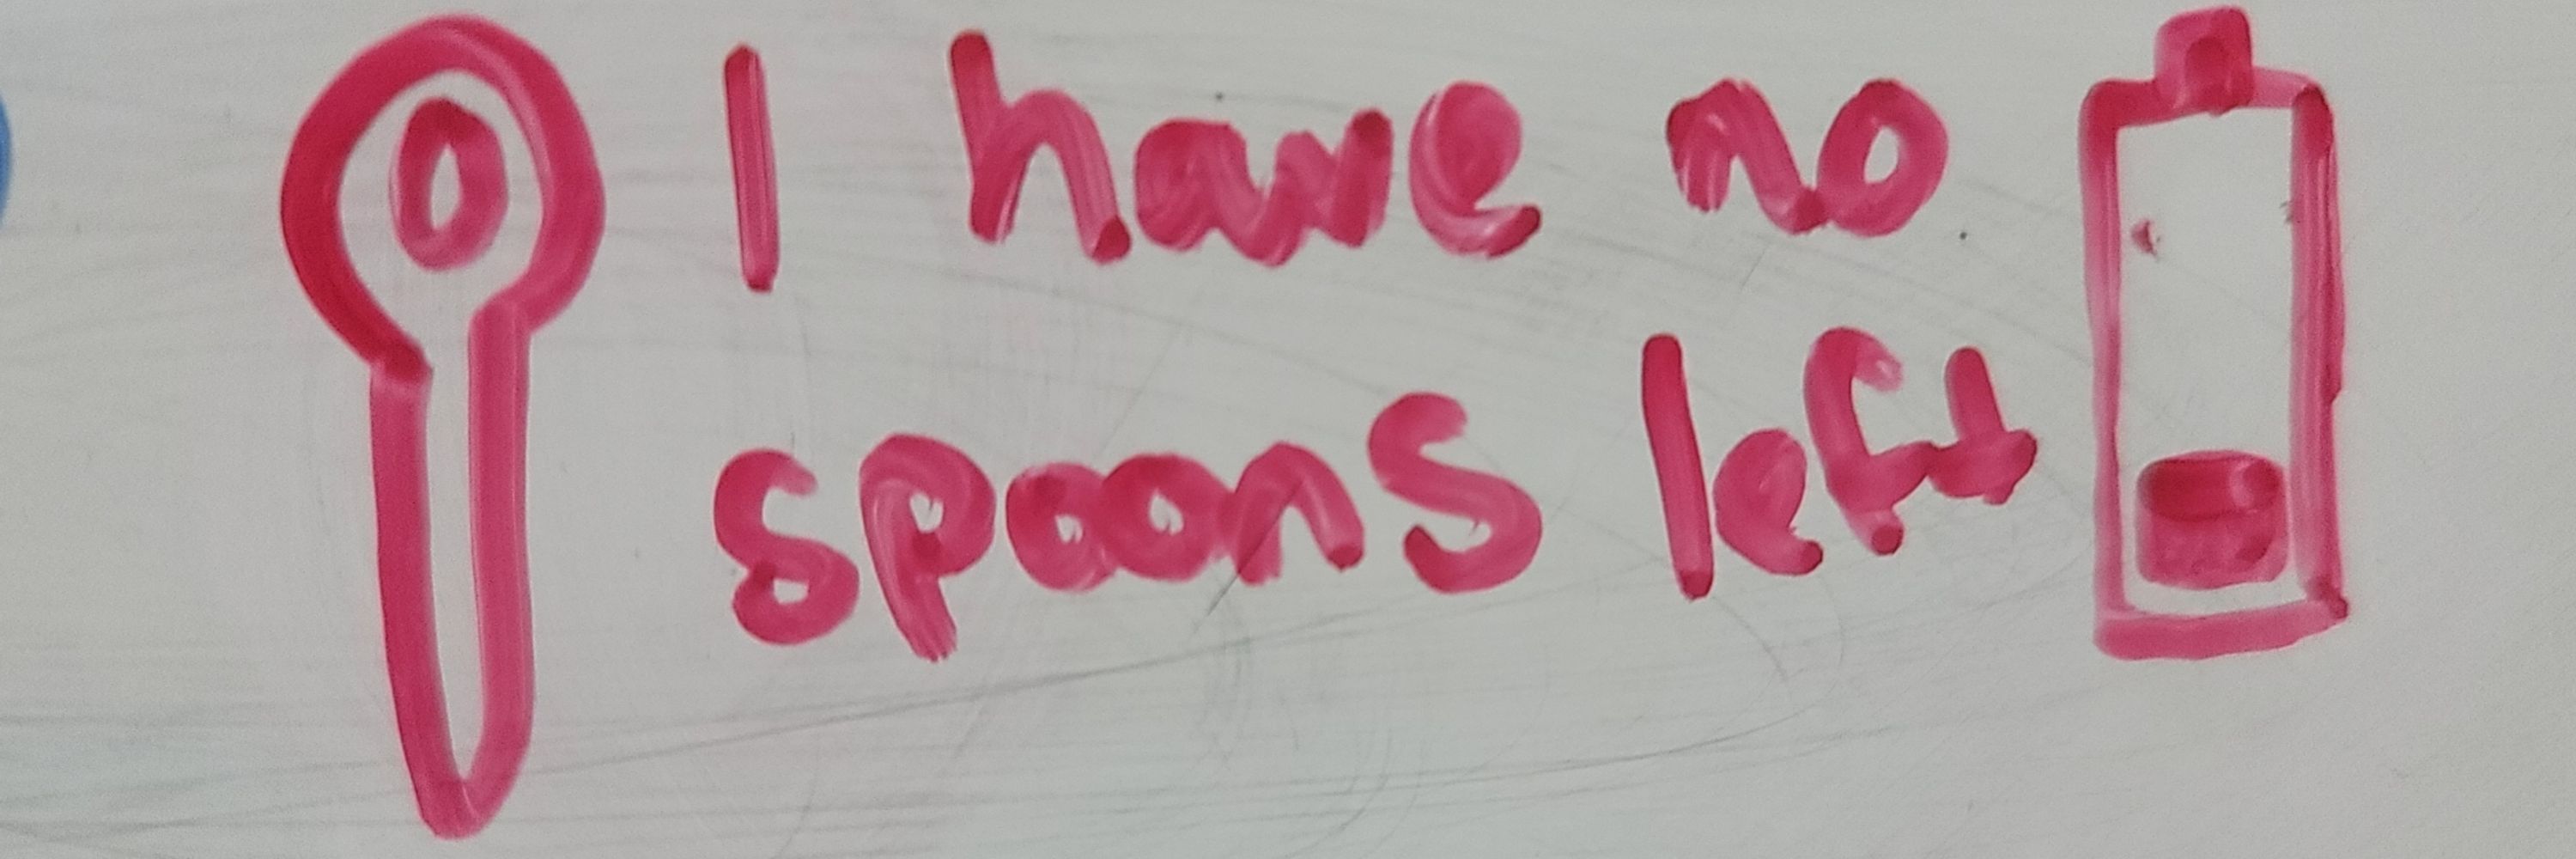 I have no
spoons left